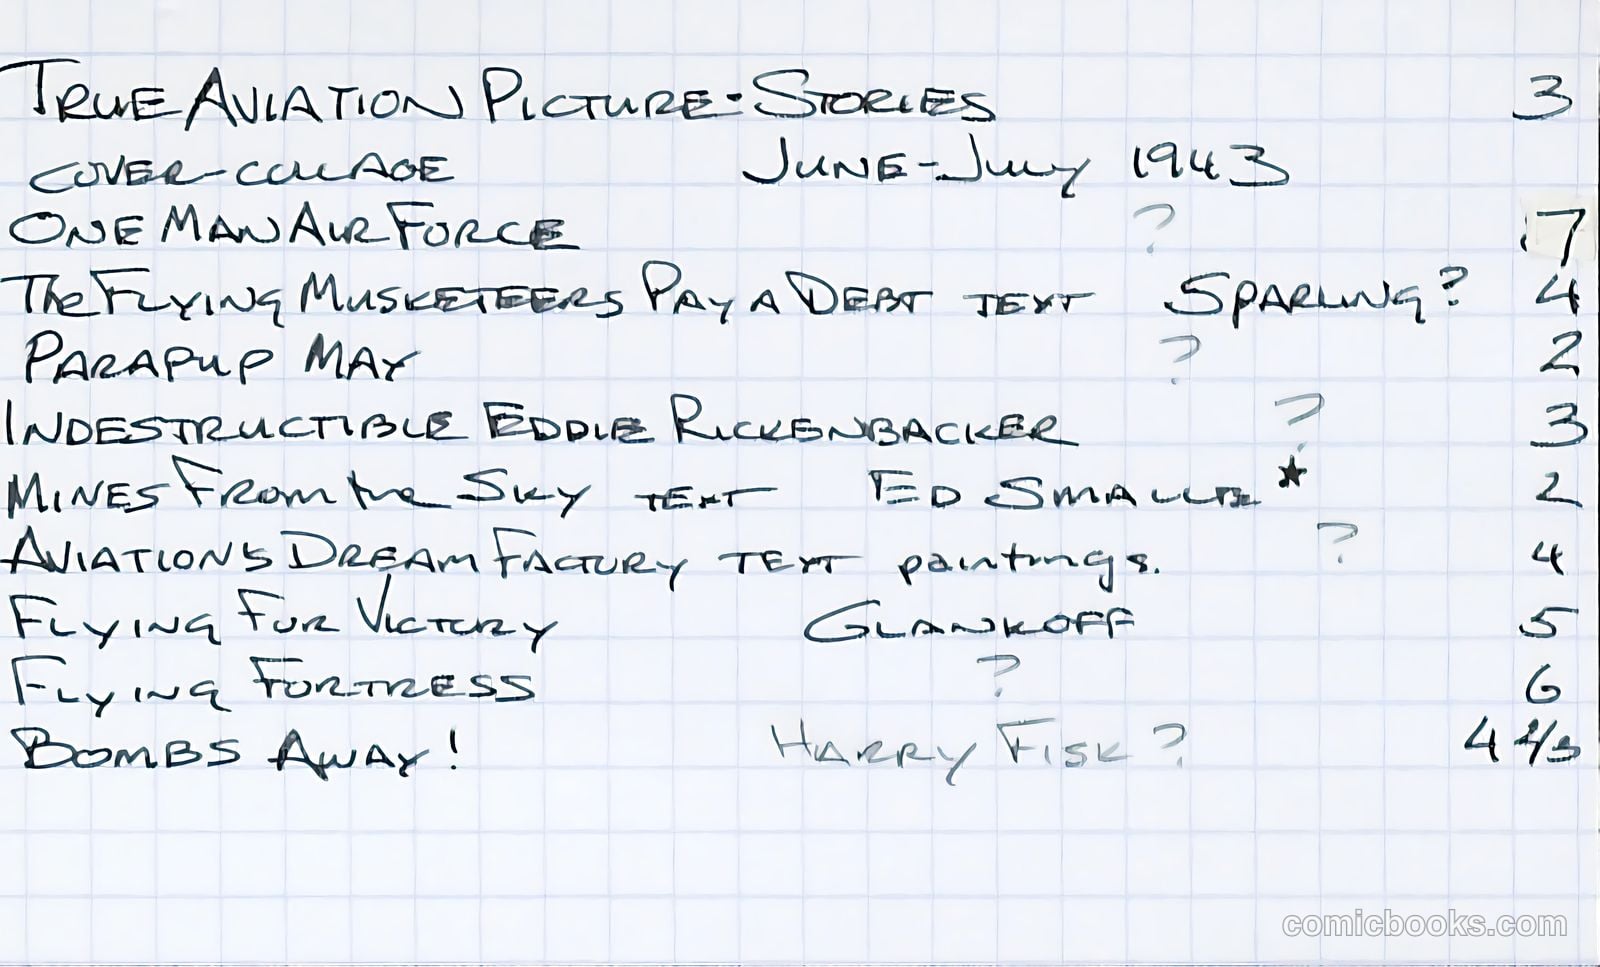 True Aviation Picture-Stories 3
Cover-Collage June-July 1943
One Man Air Force ? 7
The Flying Musketeers Pay a Debt text Sparling? 4
Parapup May ? 2
Indestructible Eddie Rickenbacker ? 3
Mines From the Sky text Ed Smalle ★ 2
Aviation's Dream Factory text paintings. ? 4
Flying For Victory Glankoff 5
Flying Fortress ? 6
Bombs Away! Harry Fisk? 4 2/3
comicbooks.com